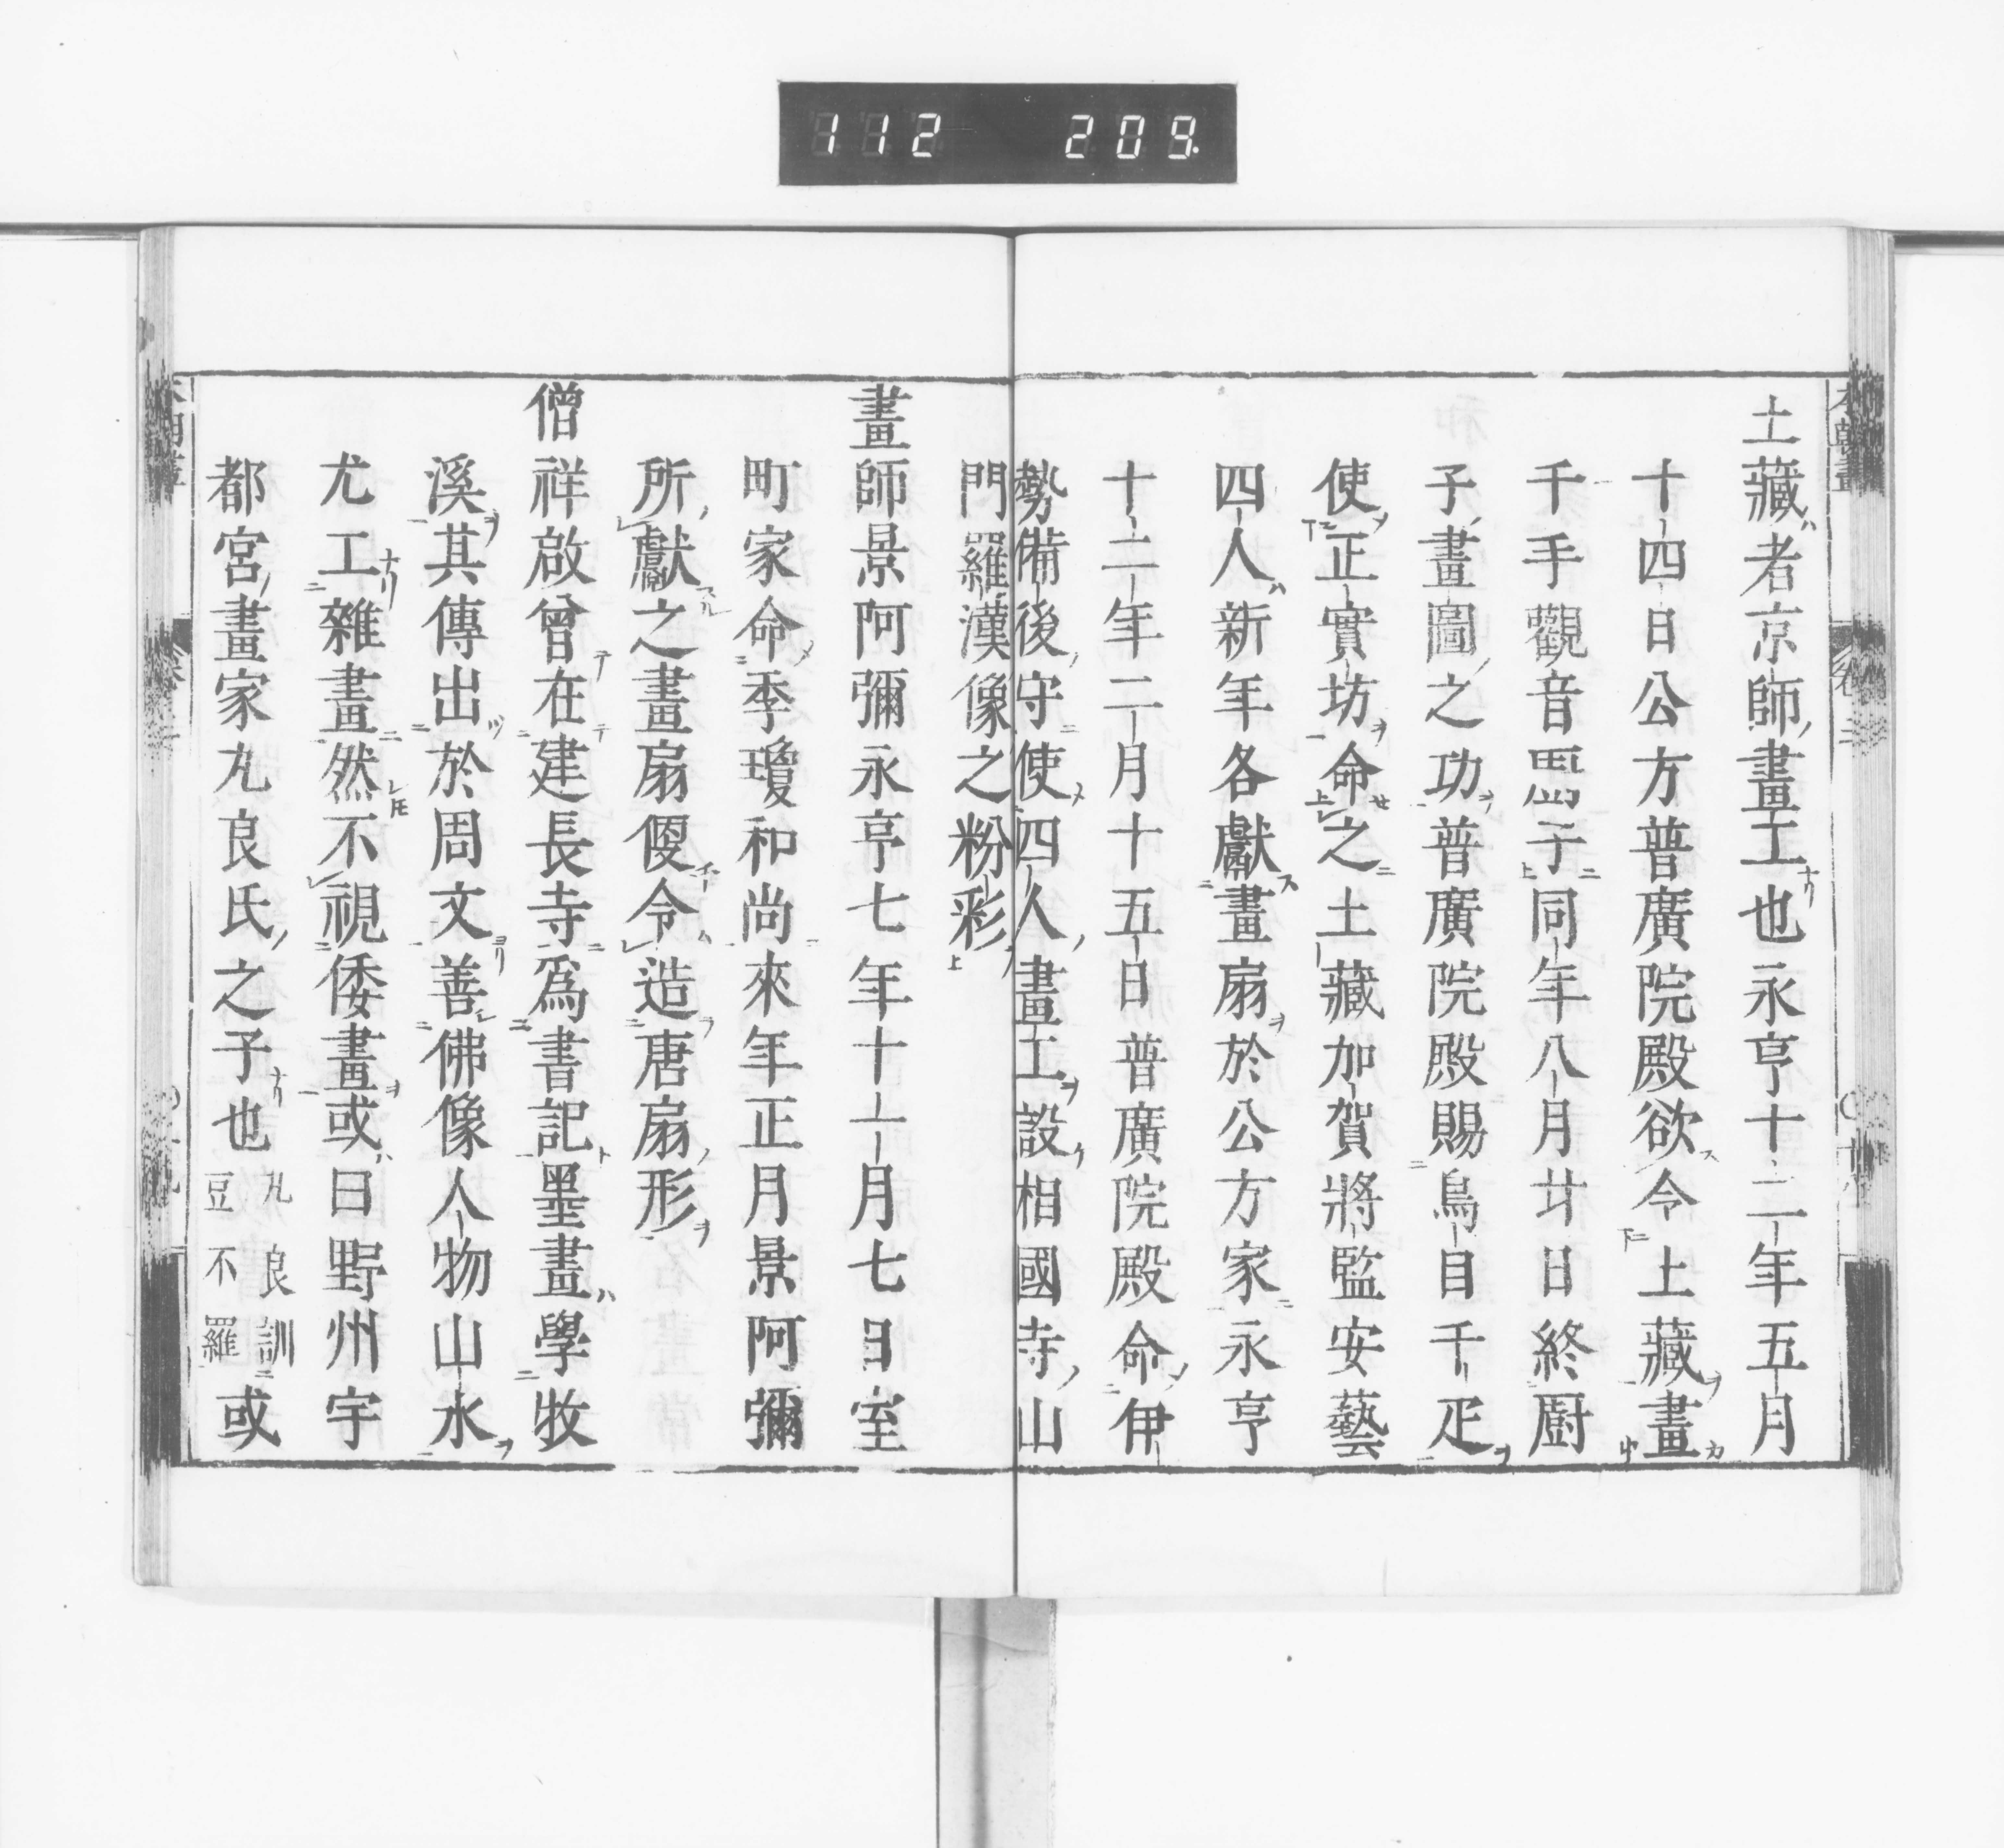 112 209
土藏者京師畫工也永亨十二年五月
十四日公方普廣院殿欲令土藏畫
千手觀音
于同年八月廿日終厨
子畫圖之功普廣院殿賜鳥目千疋
使正實坊命之土藏加賀將監安藝
四人新年各獻畫扇於公方家永亨
十二年二月十五日普廣院殿命伊
勢備後守使四人畫工設相國寺山
門羅漢像之粉彩
畫師景阿彌永亨七年十一月七日室
町家命季瓊和尚來年正月景阿彌
所獻之畫扇便令造唐扇形
僧祥啟曾在建長寺爲書記墨畫學牧
溪其傳出於周文善佛像人物山水
尤工雜畫然不視倭畫或曰野州宇
都宮畫家丸良氏之子也丸良訓豆不羅或